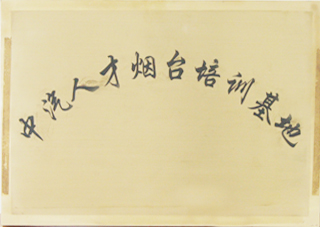 中汽人才烟台培训基地